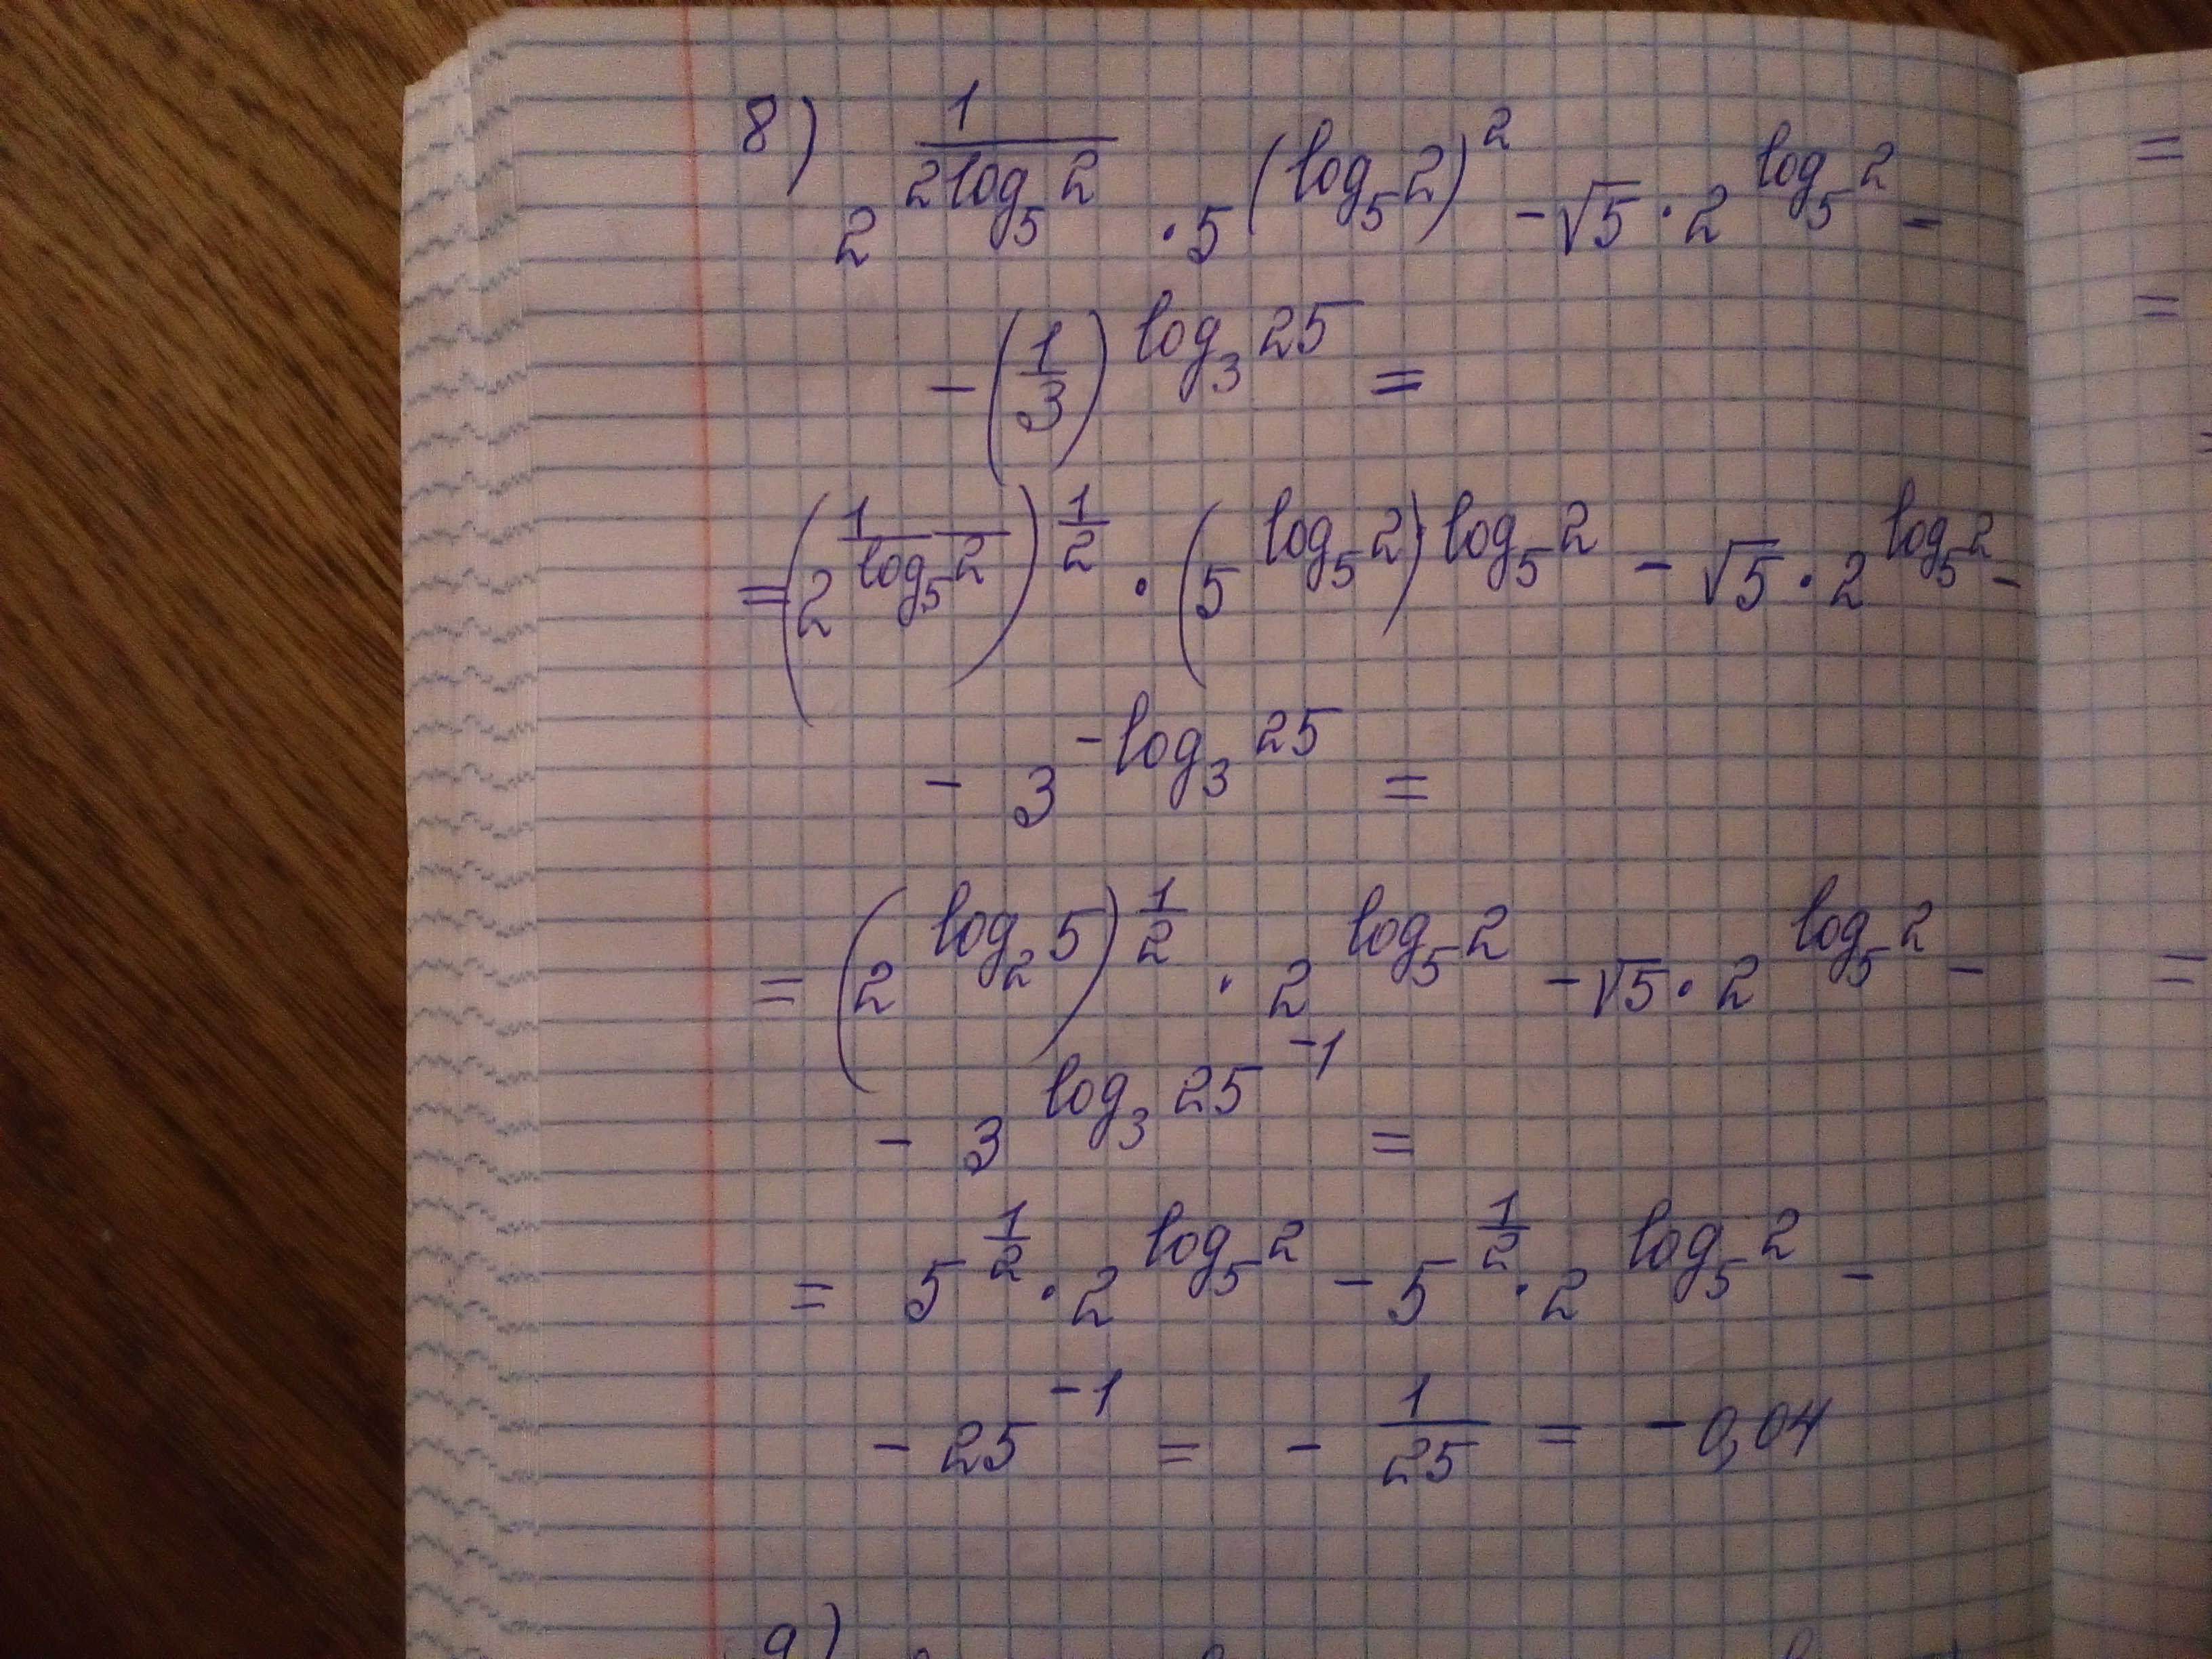 8) 2^(1/(2log₅2)) · 5^((log₅2)²) - √5 · 2^(log₅2) -
- (1/3)^(log₃25) =
= (2^(1/(log₅2)))^(1/2) · (5^(log₅2))^(log₅2) - √5 · 2^(log₅2) -
- 3^(-log₃25) =
= (2^(log₂5))^(1/2) · 2^(log₅2) - √5 · 2^(log₅2) -
- 3^(log₃25⁻¹) =
= 5^(1/2) · 2^(log₅2) - 5^(1/2) · 2^(log₅2) -
- 25⁻¹ = - 1/25 = - 0,04
9)